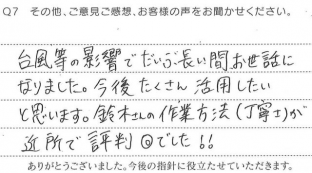 Q7 その他、ご意見ご感想、お客様の声をお聞かせください。
台風等の影響でだいぶ長い間お世話に
なりました。今後たくさん活用したい
と思います。鈴木さんの作業方法(丁寧さ)が
近所で評判◎でした!!
ありがとうございました。今後の指針に役立たせていただきます。